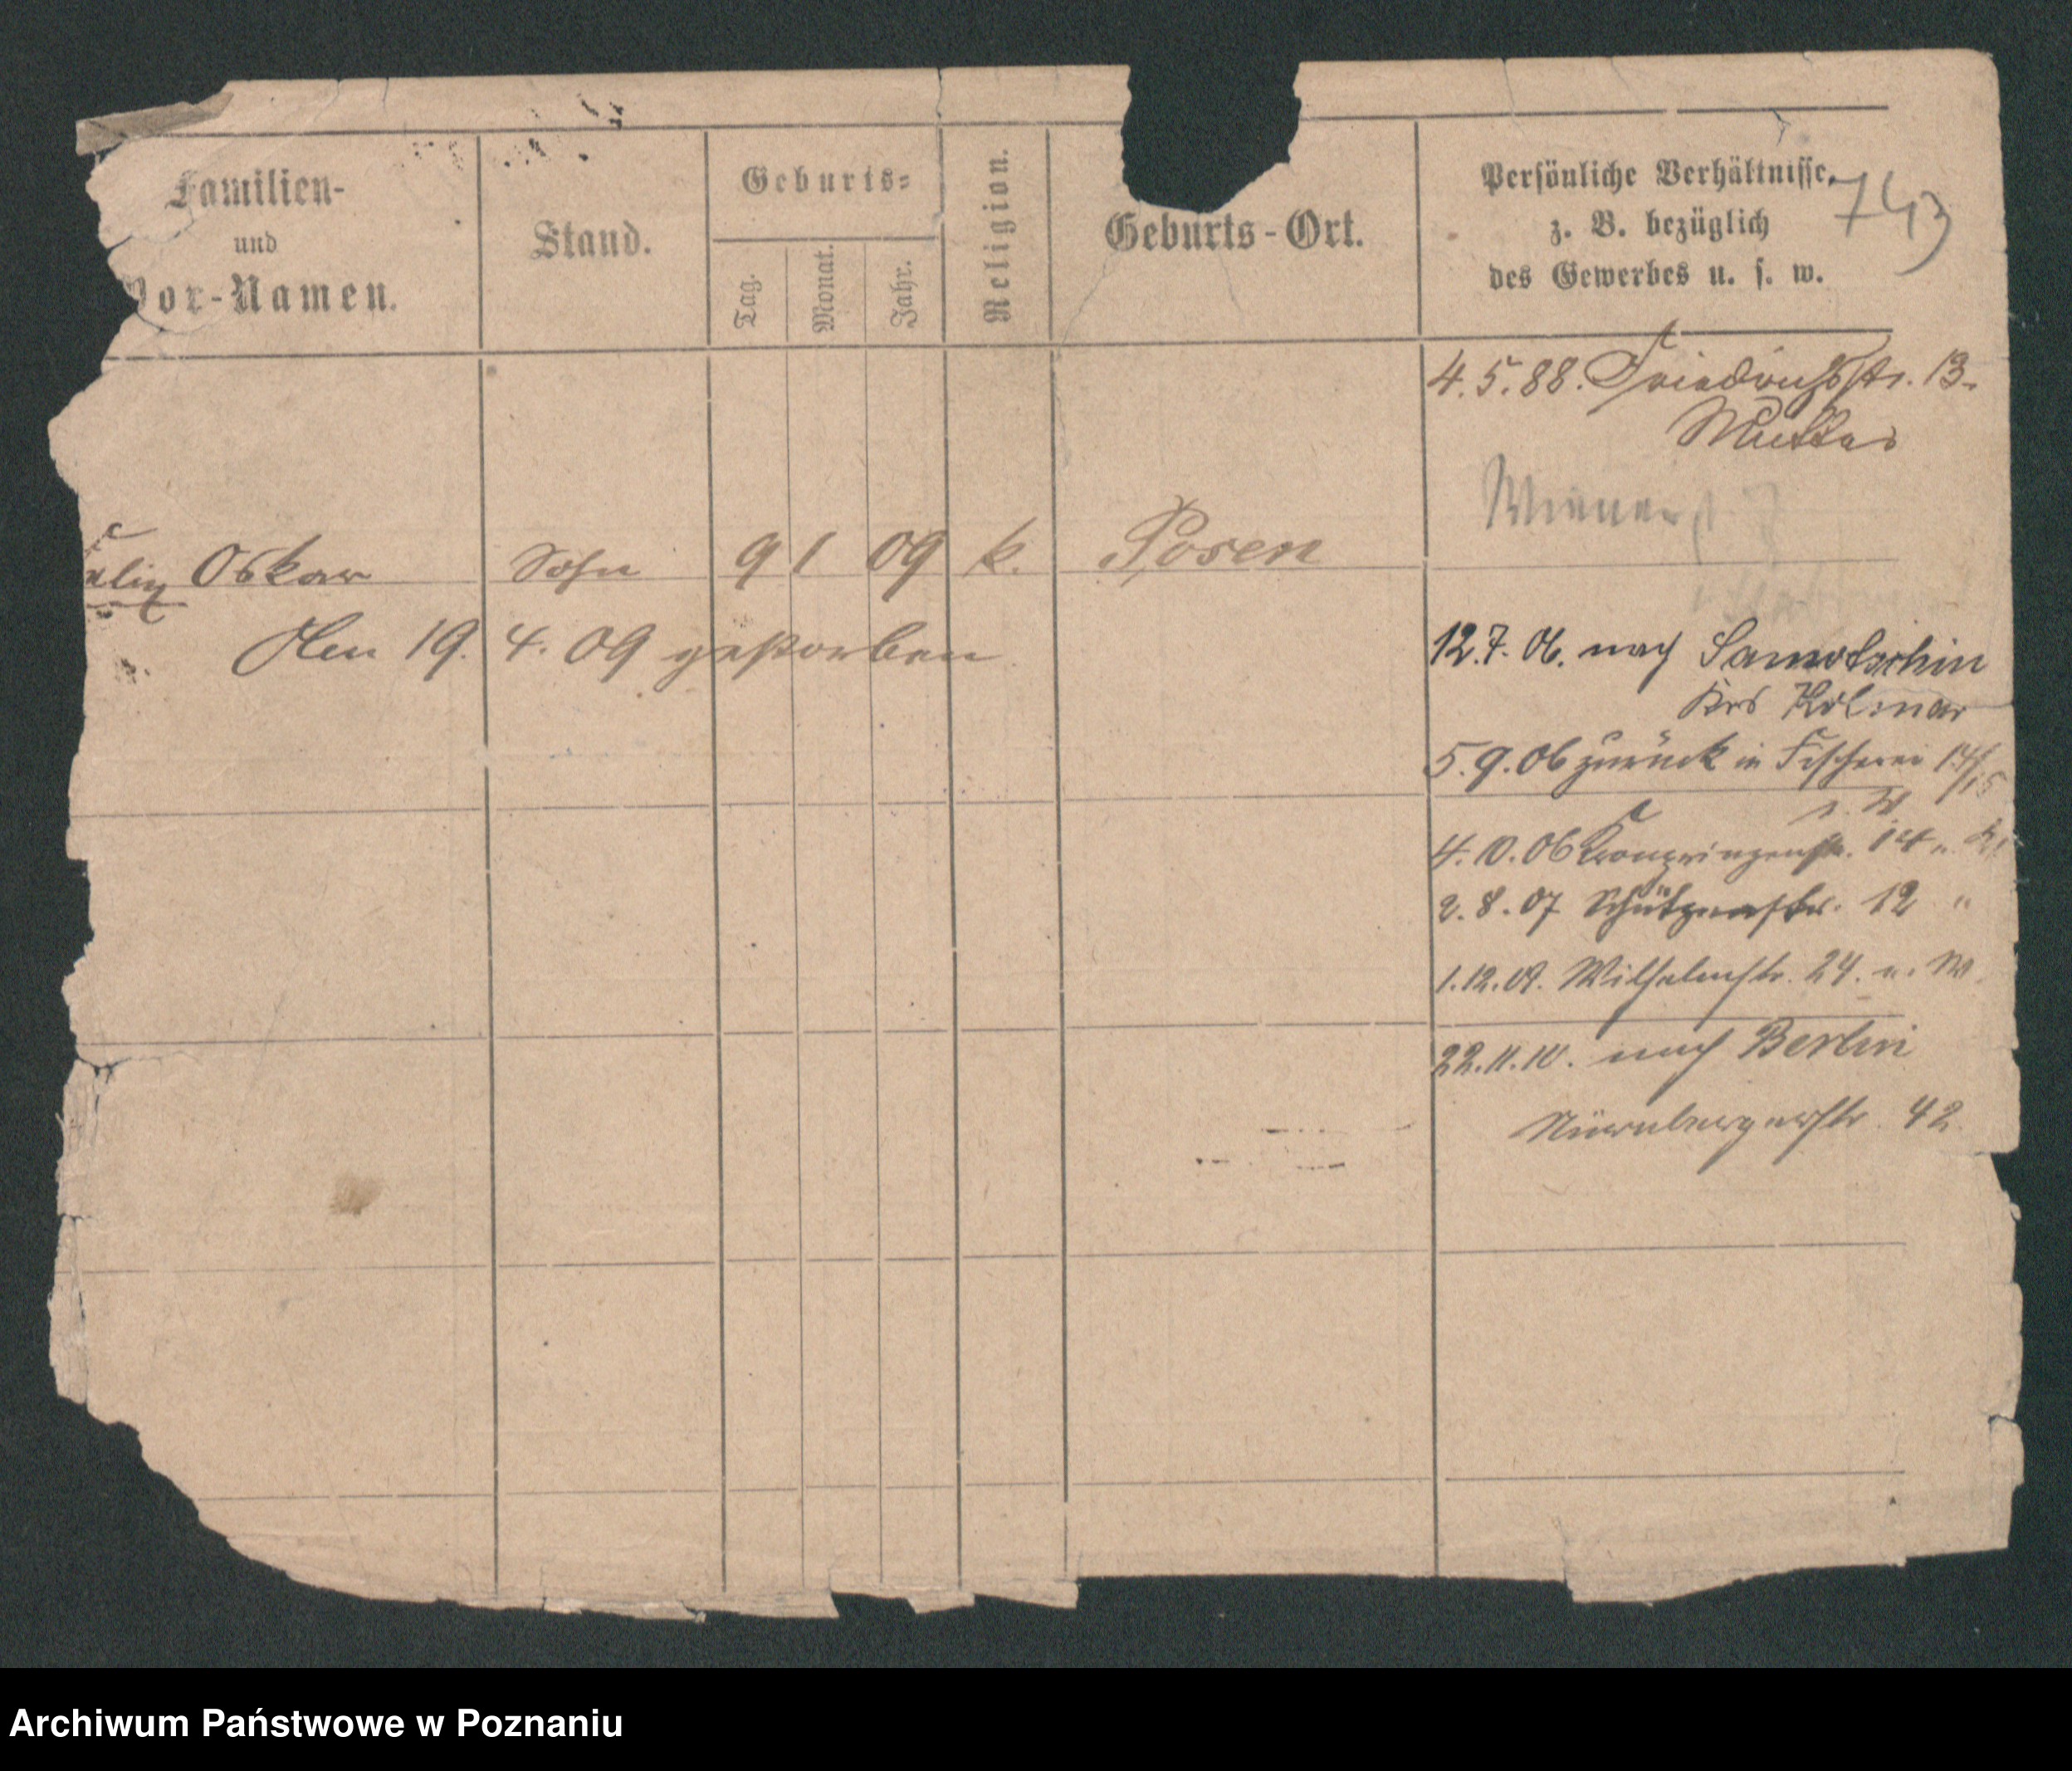 Familien-
und
Vor-Namen.
Stand.
Geburts-
Tag.
Monat.
Jahr.
Religion.
Geburts-Ort.
Persönliche Verhältnisse,
z. B. bezüglich
des Gewerbes u. s. w.
743
4.5.88. Friedrichstr. 13.
Mutter
Wiener
Oskar Sohn 9 1 09 k. Posen
Am 19. 4. 09 gestorben
12.7.06. nach Samotschin
Krs Kolmar
5.9.06 zurück in Fischerei 14/15
4.10.06 Kronprinzenstr.
2.8.07 Schützenstr. 12 "
1.12.07. Wilhelmstr. 24.
22.11.10. nach Berlin
Nürnbergerstr. 42
Archiwum Państwowe w Poznaniu